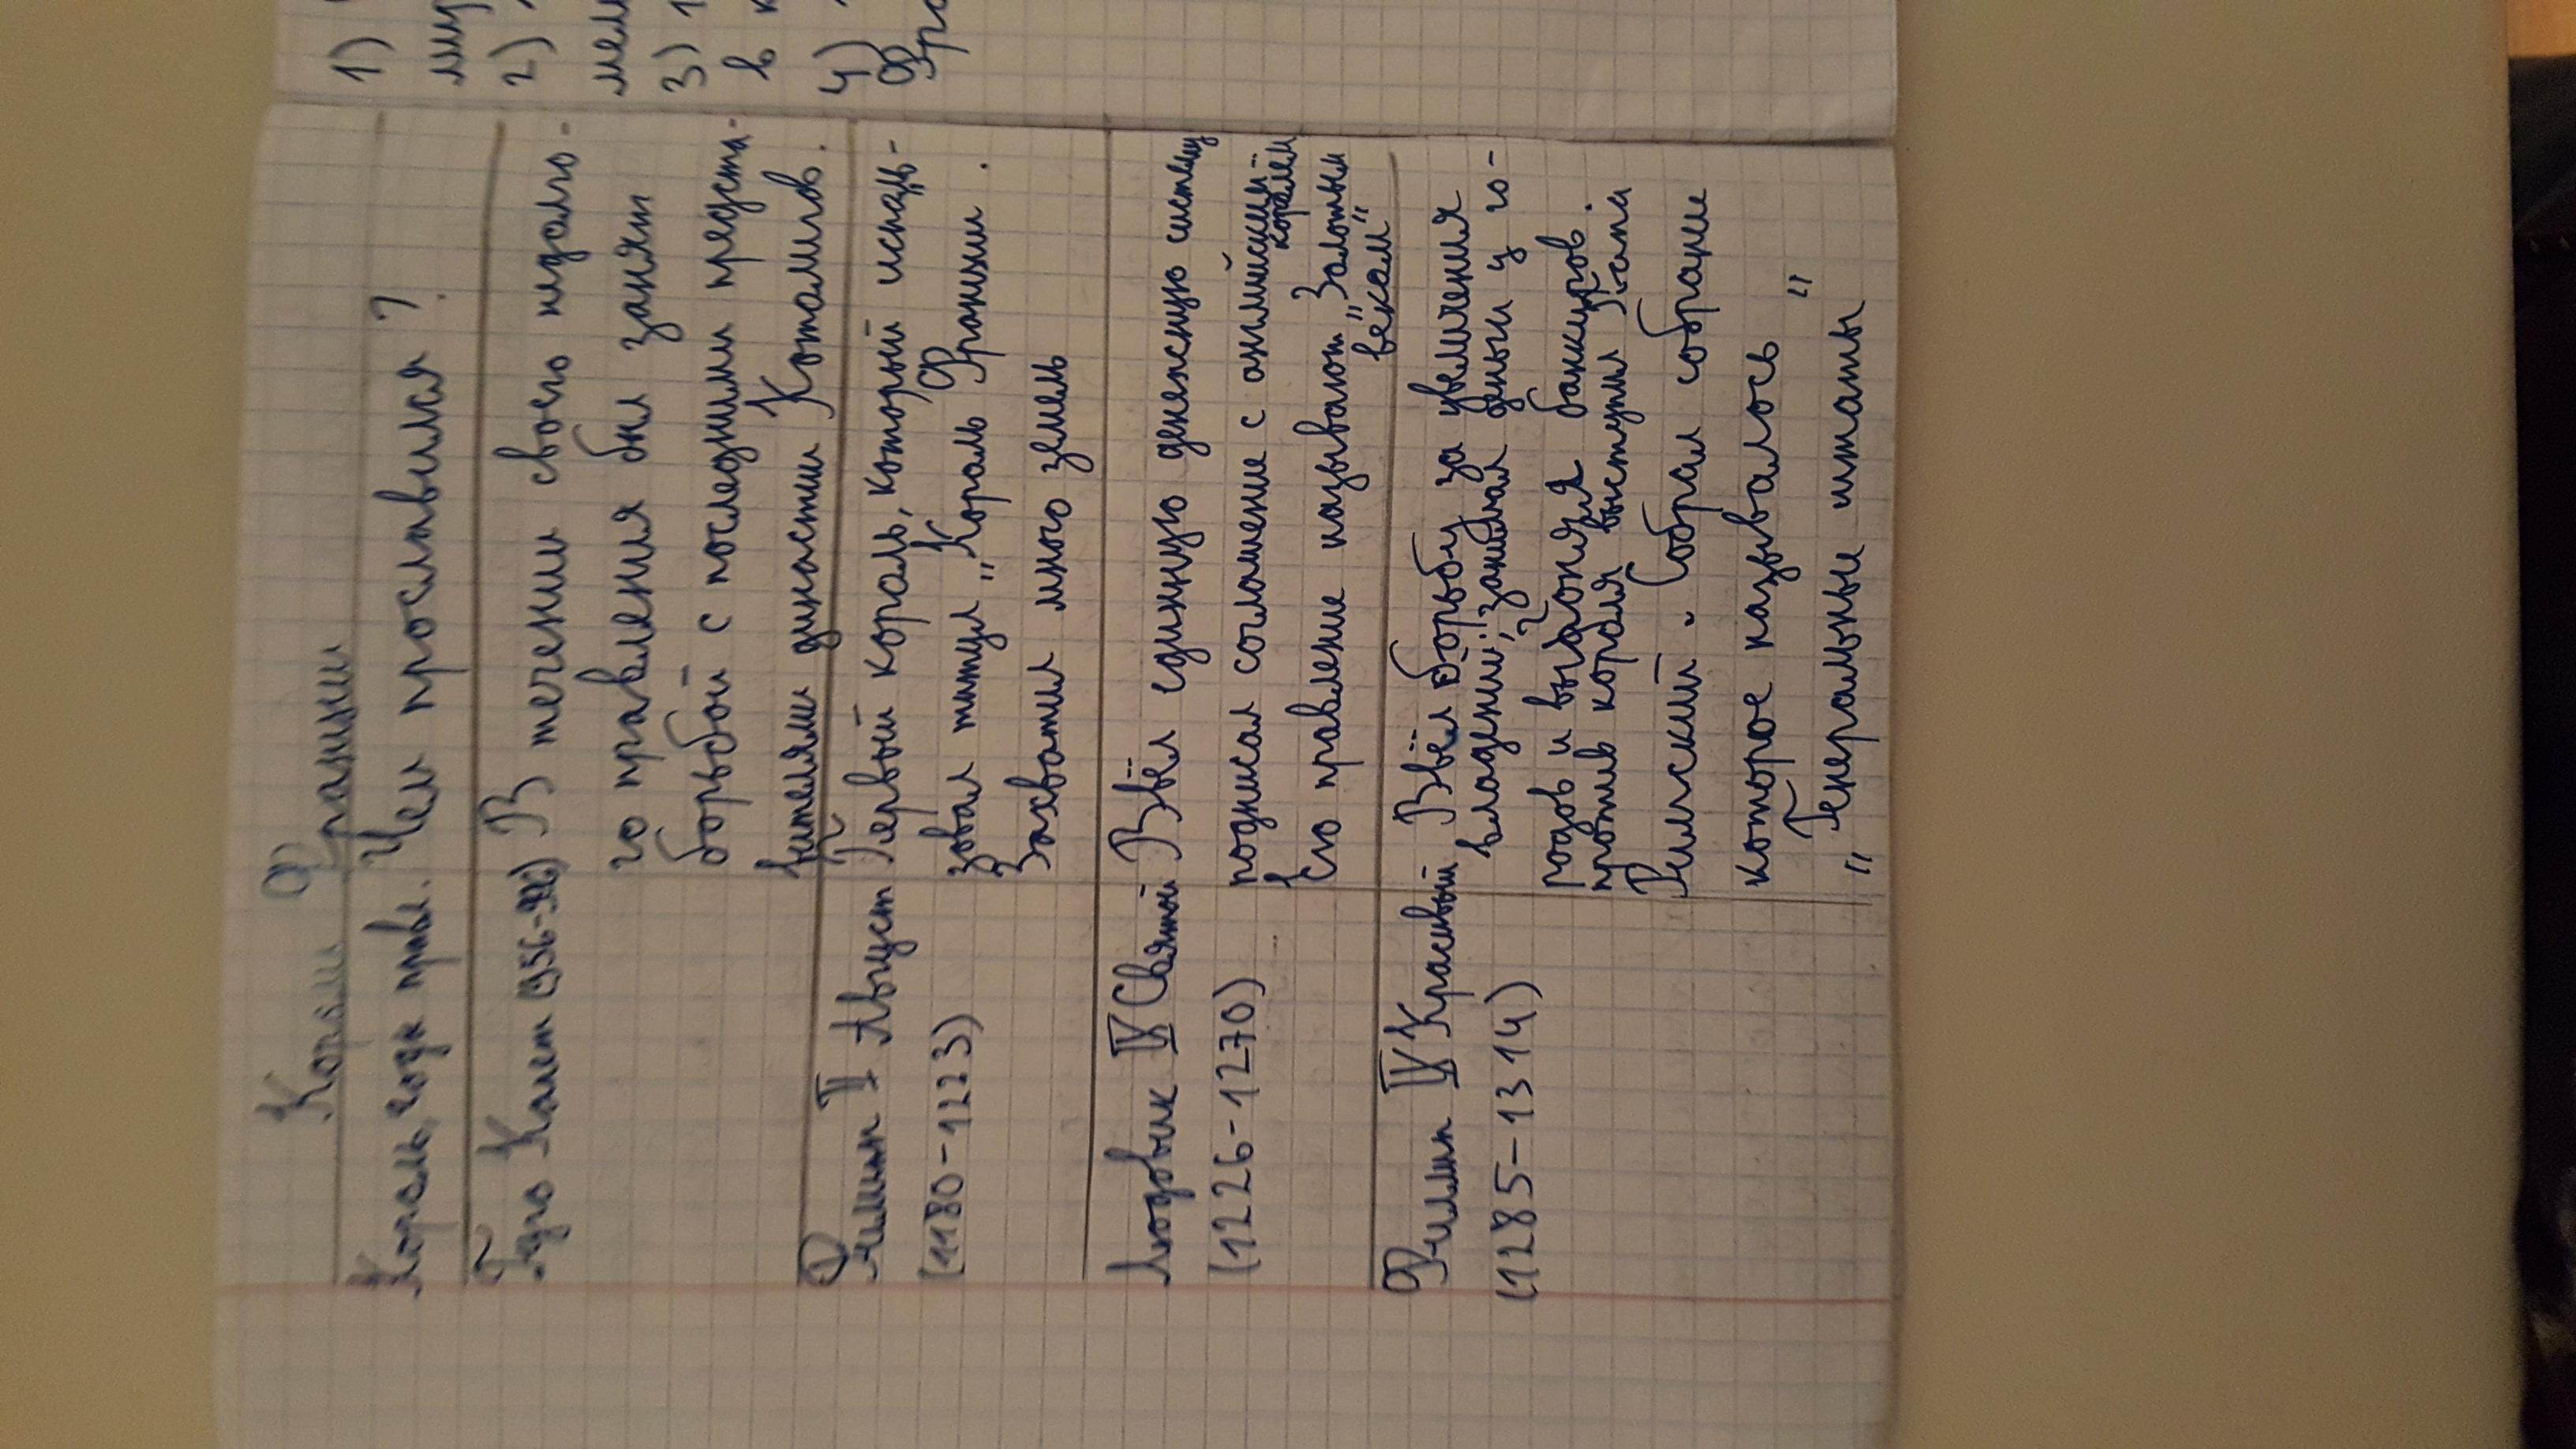 Короли Франции
Король, годы правл. Чем прославился?
Гуго Капет (956-996) В течении своего недолго-
го правления был занят
борьбой с последними предста-
вителями династии Котолигов.
Филипп II Август Первый король, который исполь-
(1180-1223) зовал титул „Король Франции".
Захватил много земель
Людовик IV Святой Ввёл единную денежную систему
(1226-1270) подписал соглашение с английским королем
Его правление называют „Золотым
веком"
Филипп IV Красивый Ввёл борьбу за увеличения
владений; занимал деньги у го-
(1285-1314) родов и выгонял банкиров.
против короля выступил Папа
Римский. Собрал собрание
которое называлось
„Генеральные штаты"
1)
2)
3)
в к
4)